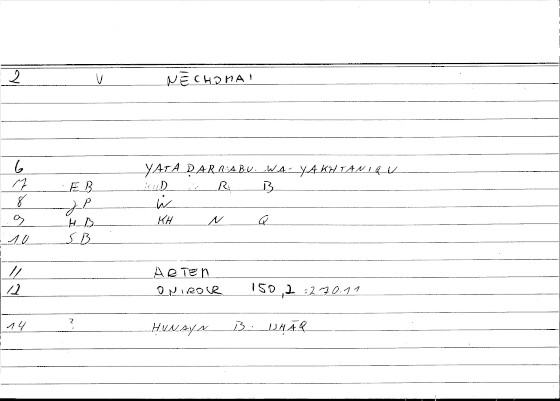 2 V NĒCHOMAI
6 YATADARRABU WA-YAKHTANIQU
7 EB D R B
8 JP W
9 HB KH N Q
10 SB
11 ARTEM
12 ONIROCR 150,2 :270.11
14 ? HUNAYN B. ISHĀQ